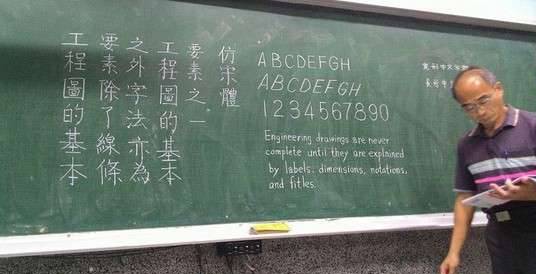 工程圖的基本
要素除了線條
之外字法亦為
工程圖的基本
要素之一
仿宋體
ABCDEFGH
ABCDEFGH
1234567890
Engineering drawings are never
complete until they are explained
by labels, dimensions, notations,
and titles.